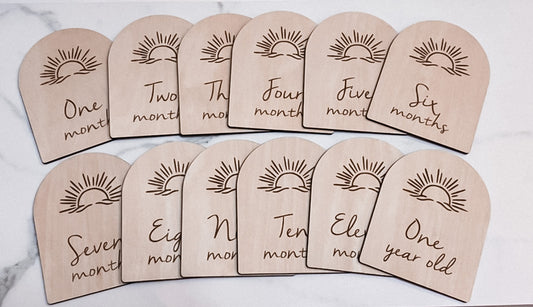 One
month
Two
month
Th
mon
Four
months
Five
month
Six
months
Seven
month
Eig
mont
N
mon
Ten
mont
Eleve
mon
One
year old